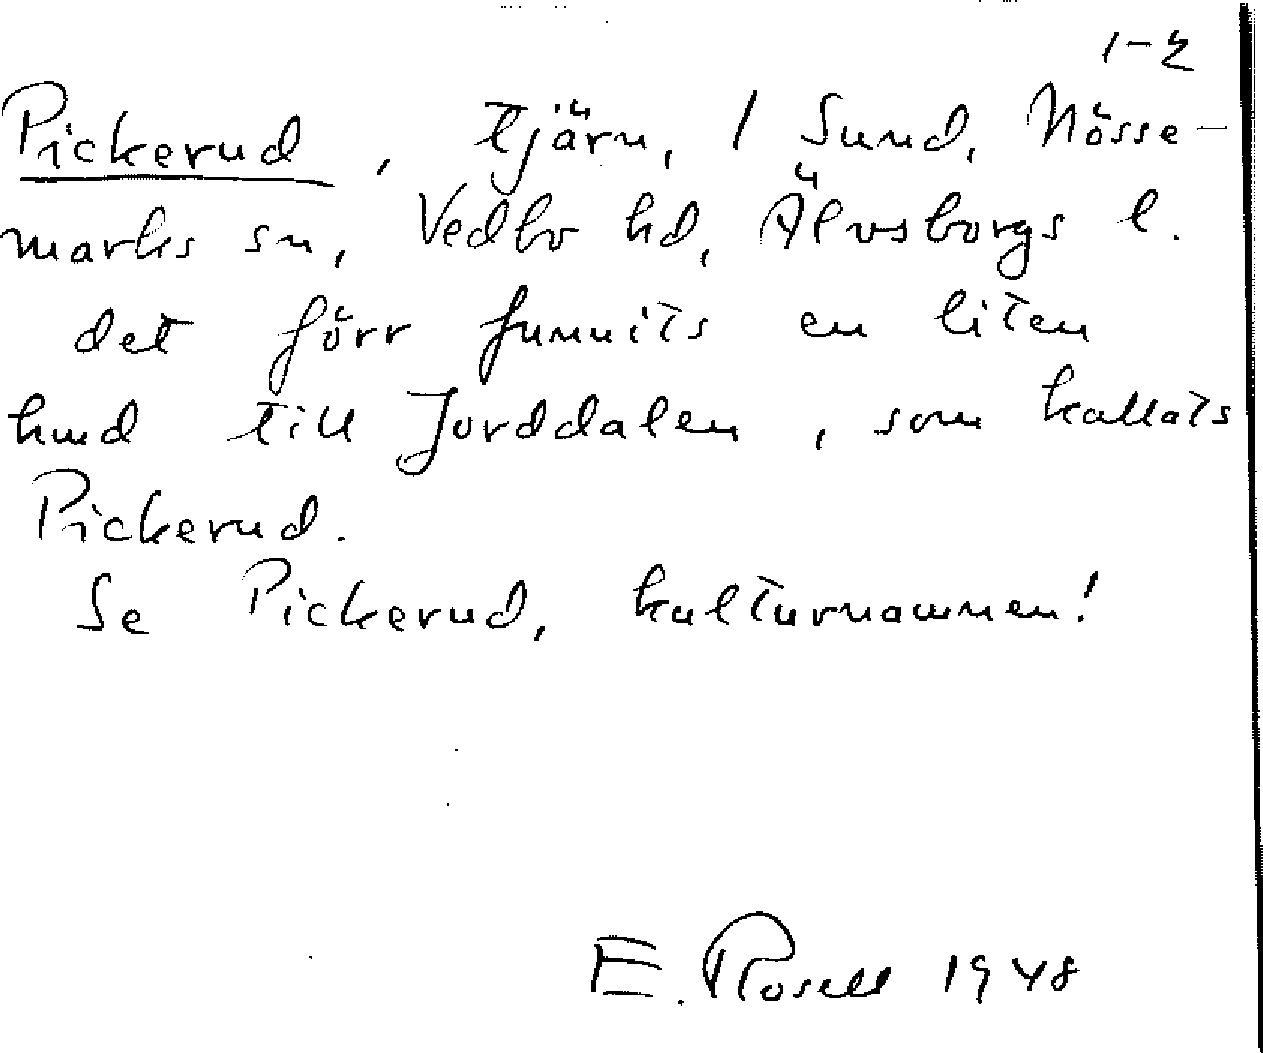 1-2
Pickerud, tjärn, 1 Sund, Nösse-
marks sn, Vedbo hd, Älvsborgs l.
det förr funnits en liten
hmd till Jorddalen, som kallats
Pickerud.
Se Pickerud, kulturnamnen!
E. Rosell 1948